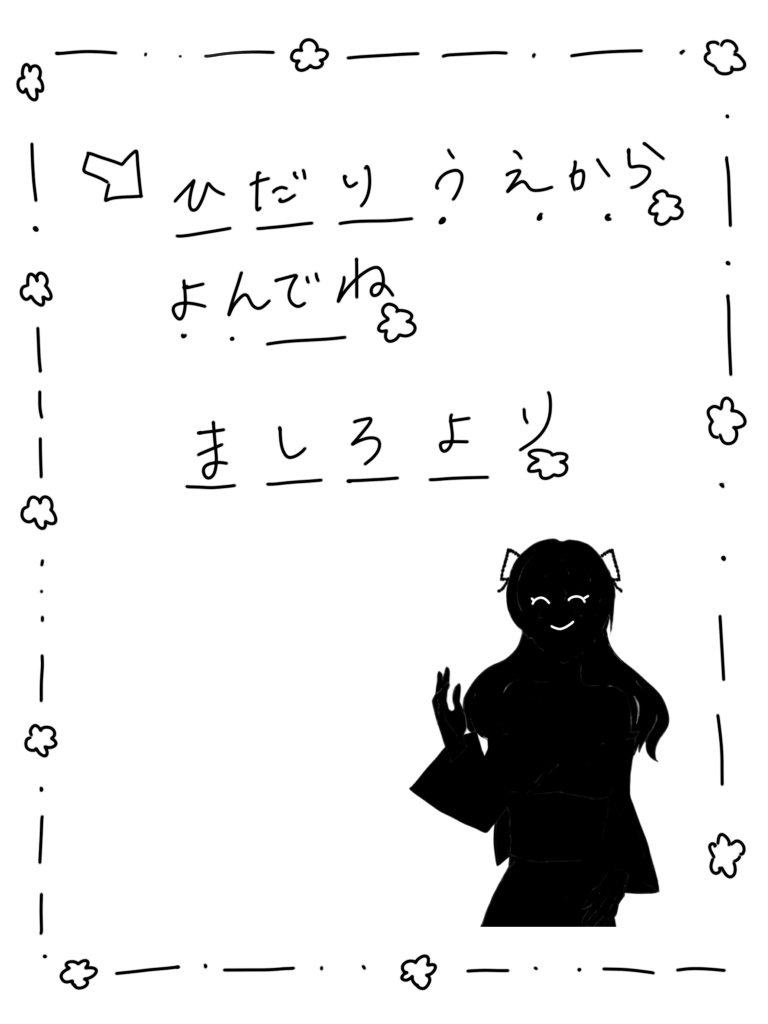 ひだりうえから
よんでね
ましろより